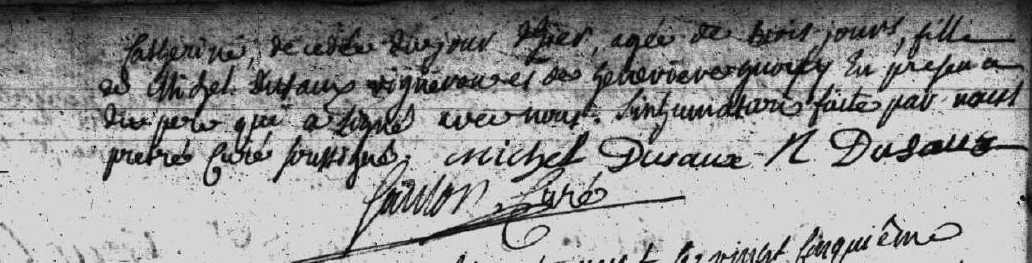 Catherine, decedée du jour d'hier, agée de trois jours, fille
de Michel Dusaux vigneron et de Genevieve En presence
du pere qui a signé avec nous. L'inhumation faite par nous
pretre Curé soussigné. Michel Dusaux N Dusaux
Curé
vingt cinquième